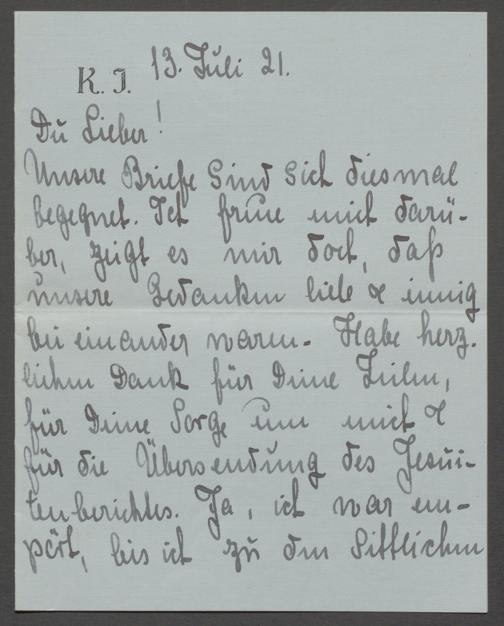 K. J. 13. Juli 21.
Du Lieber!
Unsere Briefe sind sich diesmal
begegnet. Ich freue mich darü-
ber, zeigt es mir doch, daß
unsere Gedanken lieb & innig
bei einander waren. Habe herz.
lichen Dank für Deine Zeilen,
für Deine Sorge um mich &
für die Übersendung des Jesui-
tenberichtes. Ja, ich war em-
pört, bis ich zu den sittlichen